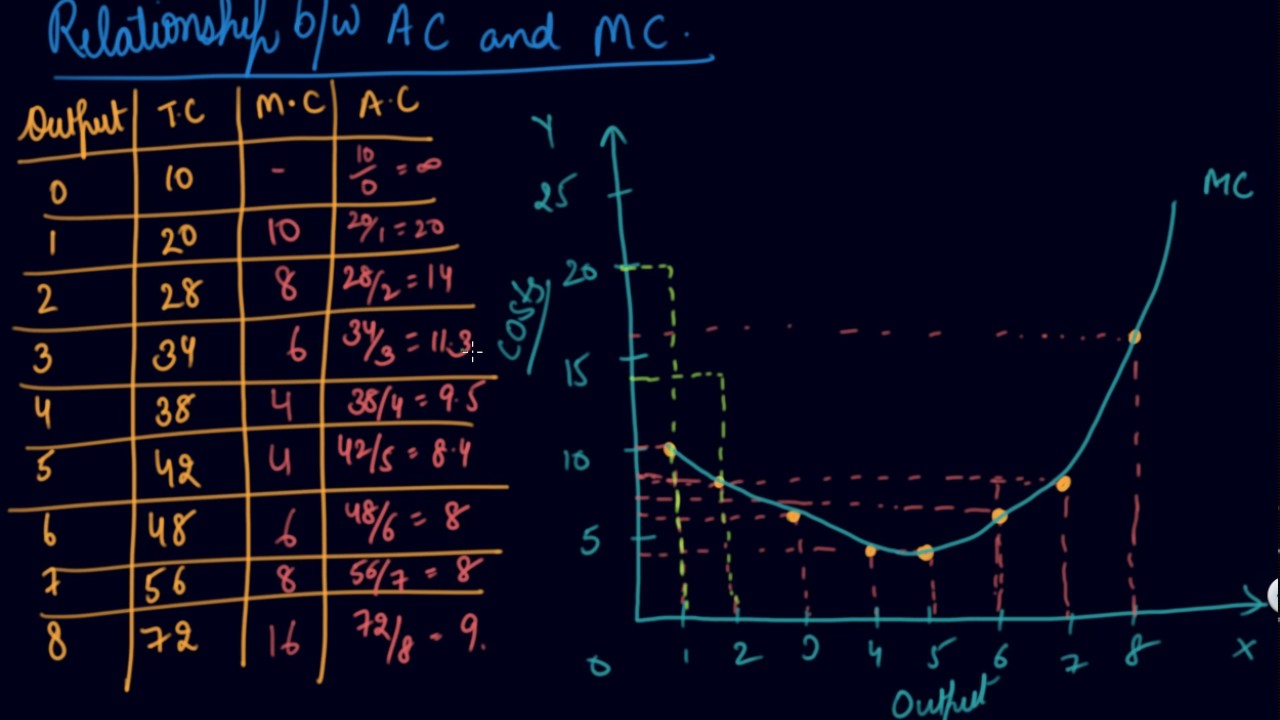 Relationship b/w AC and MC.
Output T.C M.C A.C
0 10 - 10/0 = ∞
1 20 10 20/1 = 20
2 28 8 28/2 = 14
3 34 6 34/3 = 11.3
4 38 4 38/4 = 9.5
5 42 4 42/5 = 8.4
6 48 6 48/6 = 8
7 56 8 56/7 = 8
8 72 16 72/8 = 9.
Y
MC
25
20
Costs
15
10
5
0 1 2 3 4 5 6 7 8 X
Output